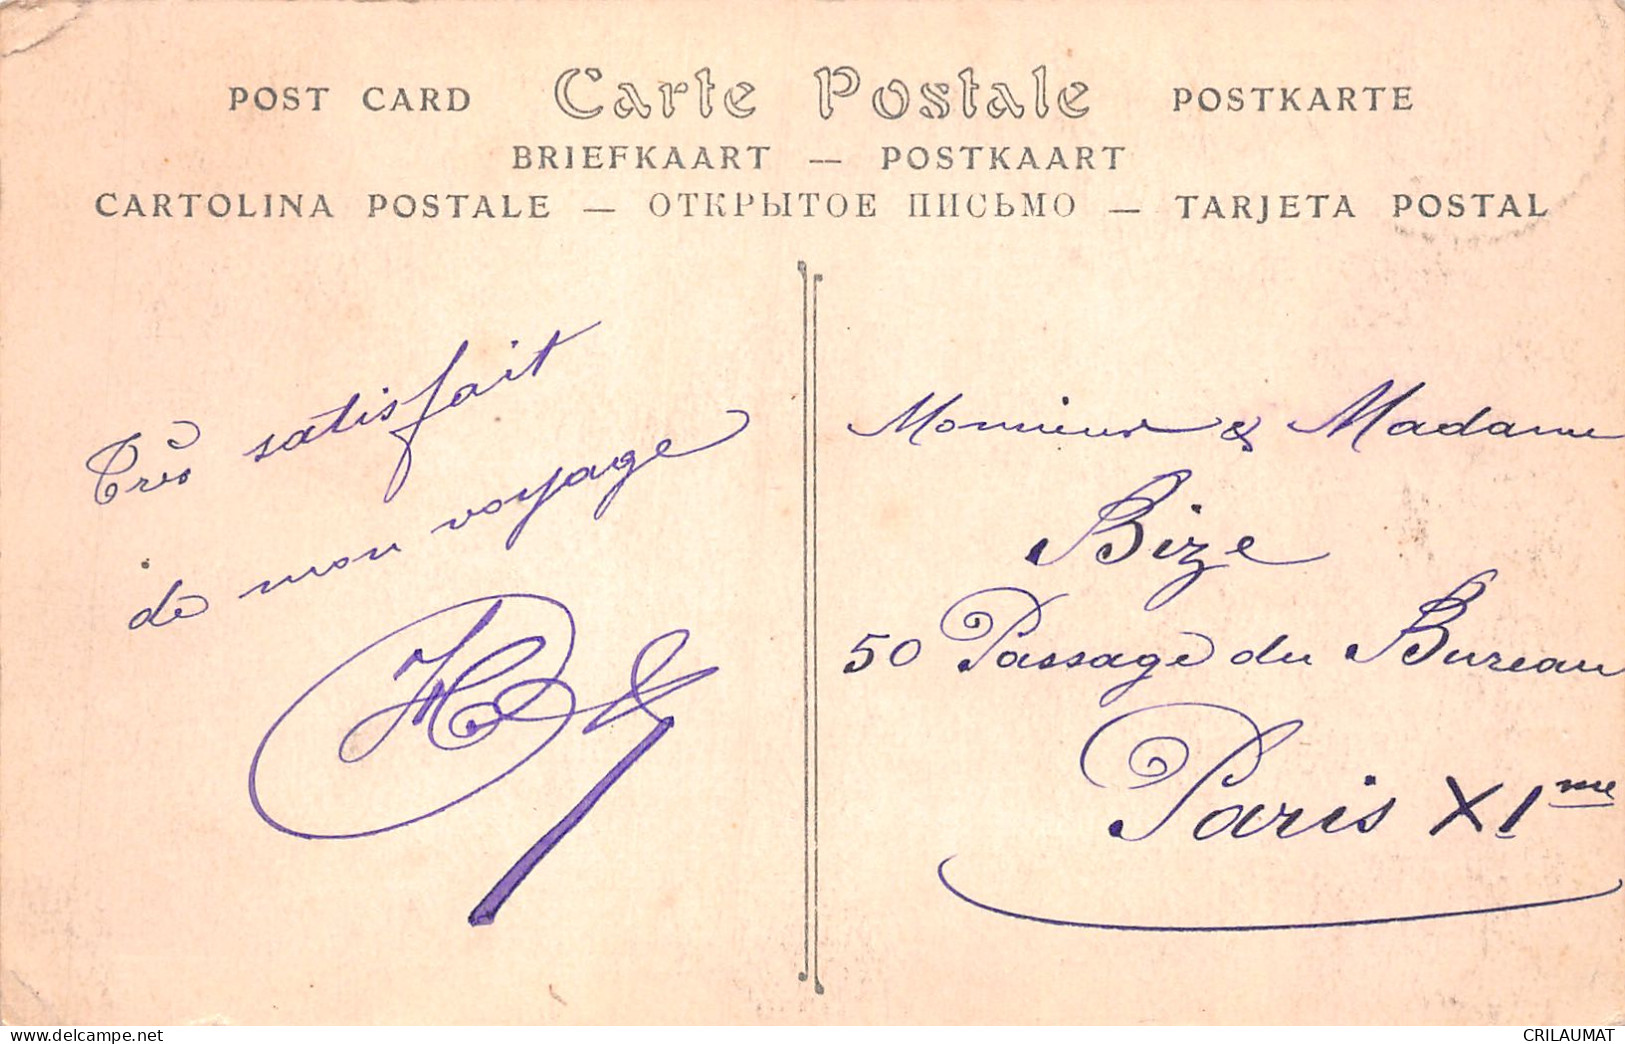 POST CARD Carte Postale POSTKARTE
BRIEFKAART — POSTKAART
CARTOLINA POSTALE — ОТКРЫТОЕ ПИСЬМО — TARJETA POSTAL
Très satisfait
de mon voyage
Monsieur & Madame
Bize
50 Passage du Bureau
Paris XIme
www.delcampe.net
CRILAUMAT